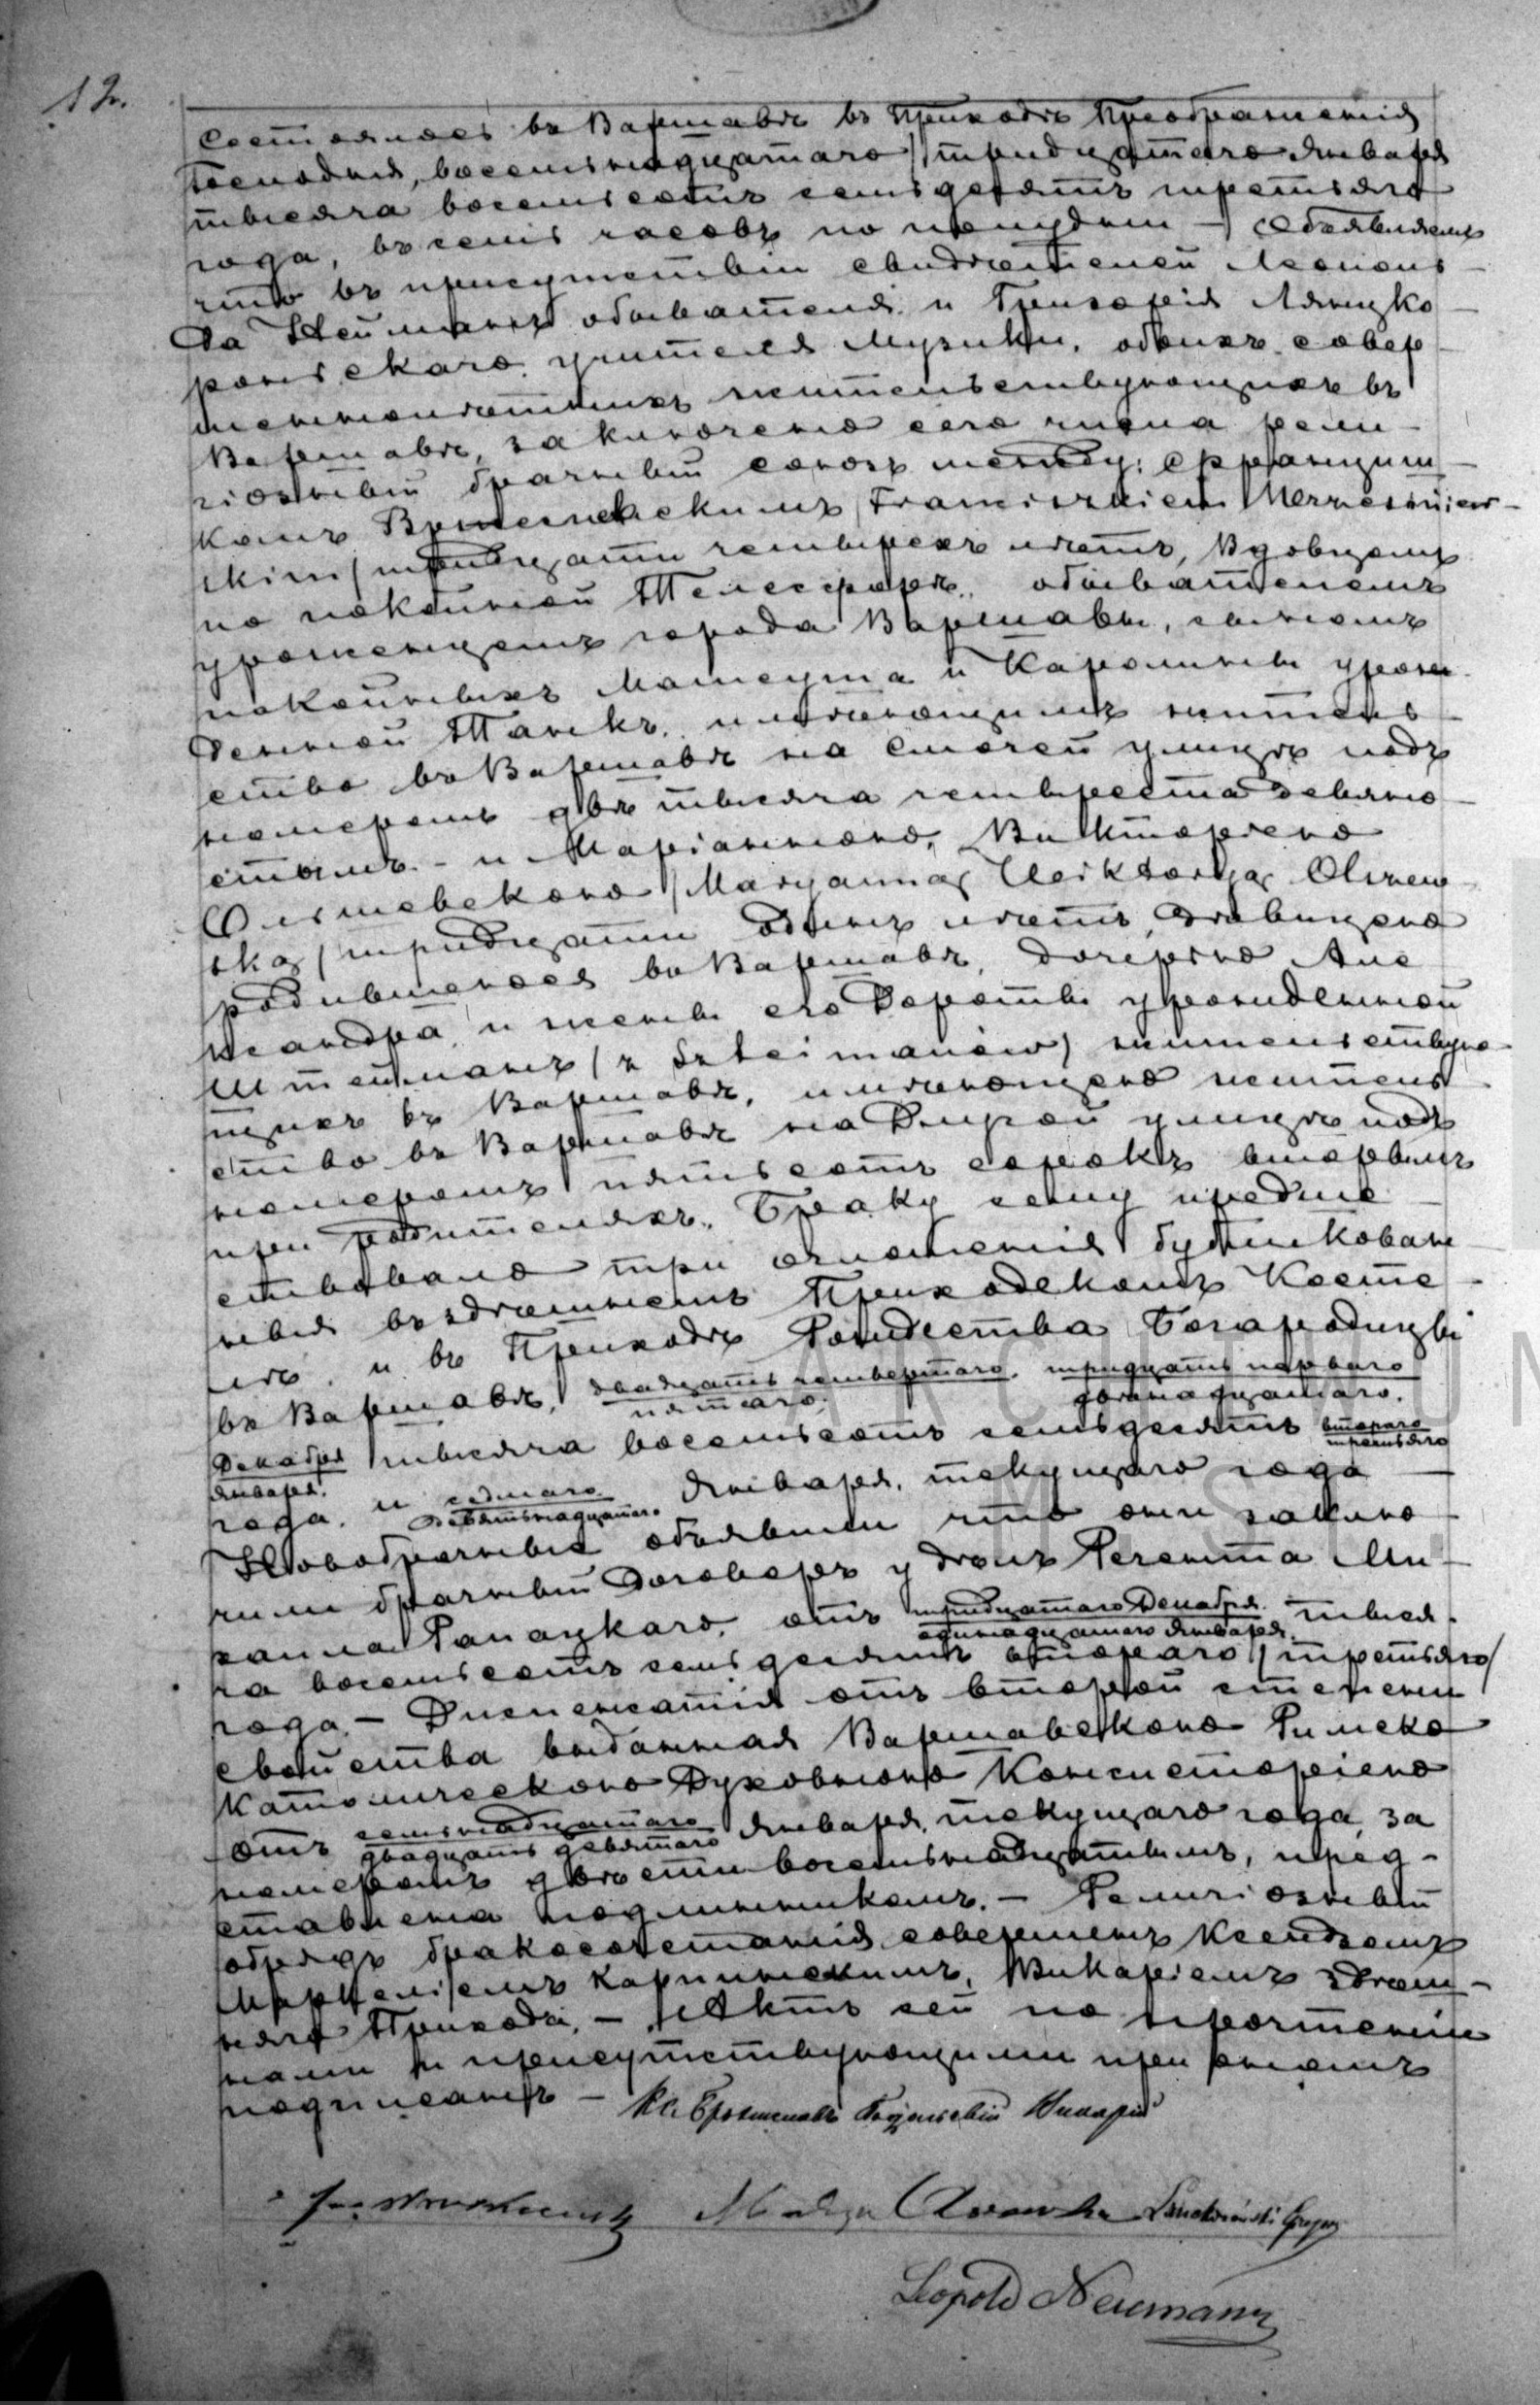 12.
Состоялось въ Варшавѣ въ Приходѣ Преображенія
Господня, восемьнадцатаго /тридцатаго Января
тысяча восемьсотъ семьдесятъ третьяго
года, въ семь часовъ по полудни — Объявляемъ
что въ присутствіи свидѣтелей Леополь-
да Неймана обывателя и Григорія Лянцко-
роньскаго учителя Музыки, обоихъ совер-
шеннолѣтнихъ жительствующихъ въ
Варшавѣ, заключено сего числа рели-
гіозный брачный союзъ между: Францишкомъ
/Franciszkiem
скim/ тридцати четырехъ лѣтъ, Вдовцемъ
по покойной Телесфорѣ, обывателемъ
уроженцемъ города Варшавы, сыномъ
покойныхъ Матеуша и Каролины урож-
денной Танскъ, имѣющимъ житель-
ство въ Варшавѣ на Смочей улицѣ подъ
номеромъ двѣ тысяча четыреста девяно-
стымъ. — и Маріанною, Викторіею
Ольшевскою /Maryanną Wiktoryą Olszew-
ską/ тридцати одинъ лѣтъ, дѣвицею
родившеюся въ Варшавѣ, дочерью Але-
ксандра и жены его Дороты урожденной
Штейманъ /z Szteimanów/ жительствую-
щихъ въ Варшавѣ, имѣющею житель-
ство въ Варшавѣ на Дикой улицѣ подъ
номеромъ пятьсотъ сорокъ вторымъ
при родителяхъ. Браку сему предше-
ствовало три оглашенія публикован-
ныя въ здѣшнемъ Приходскомъ Косте-
лѣ, и въ Приходѣ Рождества Богародицы
въ Варшавѣ, двадцать четвертаго, тридцать перваго
пятаго, двѣнадцатаго,
Декабря тысяча восемьсотъ семьдесятъ втораго
Января, третьяго
года, и седмаго Января, текущаго года
девятьнадцатаго
Новобрачные объявили что они заклю-
чили брачный договоръ у Регента Ми-
хаила Рапацкаго, отъ тридцатаго Декабря тыся-
одинадцатаго Января
ча восемьсотъ семьдесятъ втораго /третьяго/
года. — Диспенсація отъ второй степени
свойства выданная Варшавскою Римско
Католическою Духовною Консисторіею
отъ семьнадцатаго Января, текущаго года, за
двадцать девятаго
номеромъ двѣсти восемьнадцатымъ, пред-
ставлена подлинникомъ. — Религіозный
обрядъ бракосочетанія совершенъ Ксендзомъ
Карпинскимъ, Викаріемъ здѣш-
няго Прихода. — Актъ сей по прочтеніи
нами и присутствующими при ономъ
подписанъ — Кс. Викарій
Lanckoroński Grzegorz
Leopold Neumann